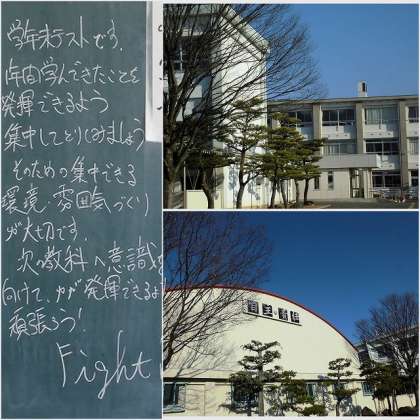 学年末テストです。
1年間学んできたことを
発揮できるよう
集中してとりくみましょう
そのための集中できる
環境・雰囲気づくり
が大切です。
次の教科へ意識を
向けて、力が発揮できるよ
頑張ろう!
Fight